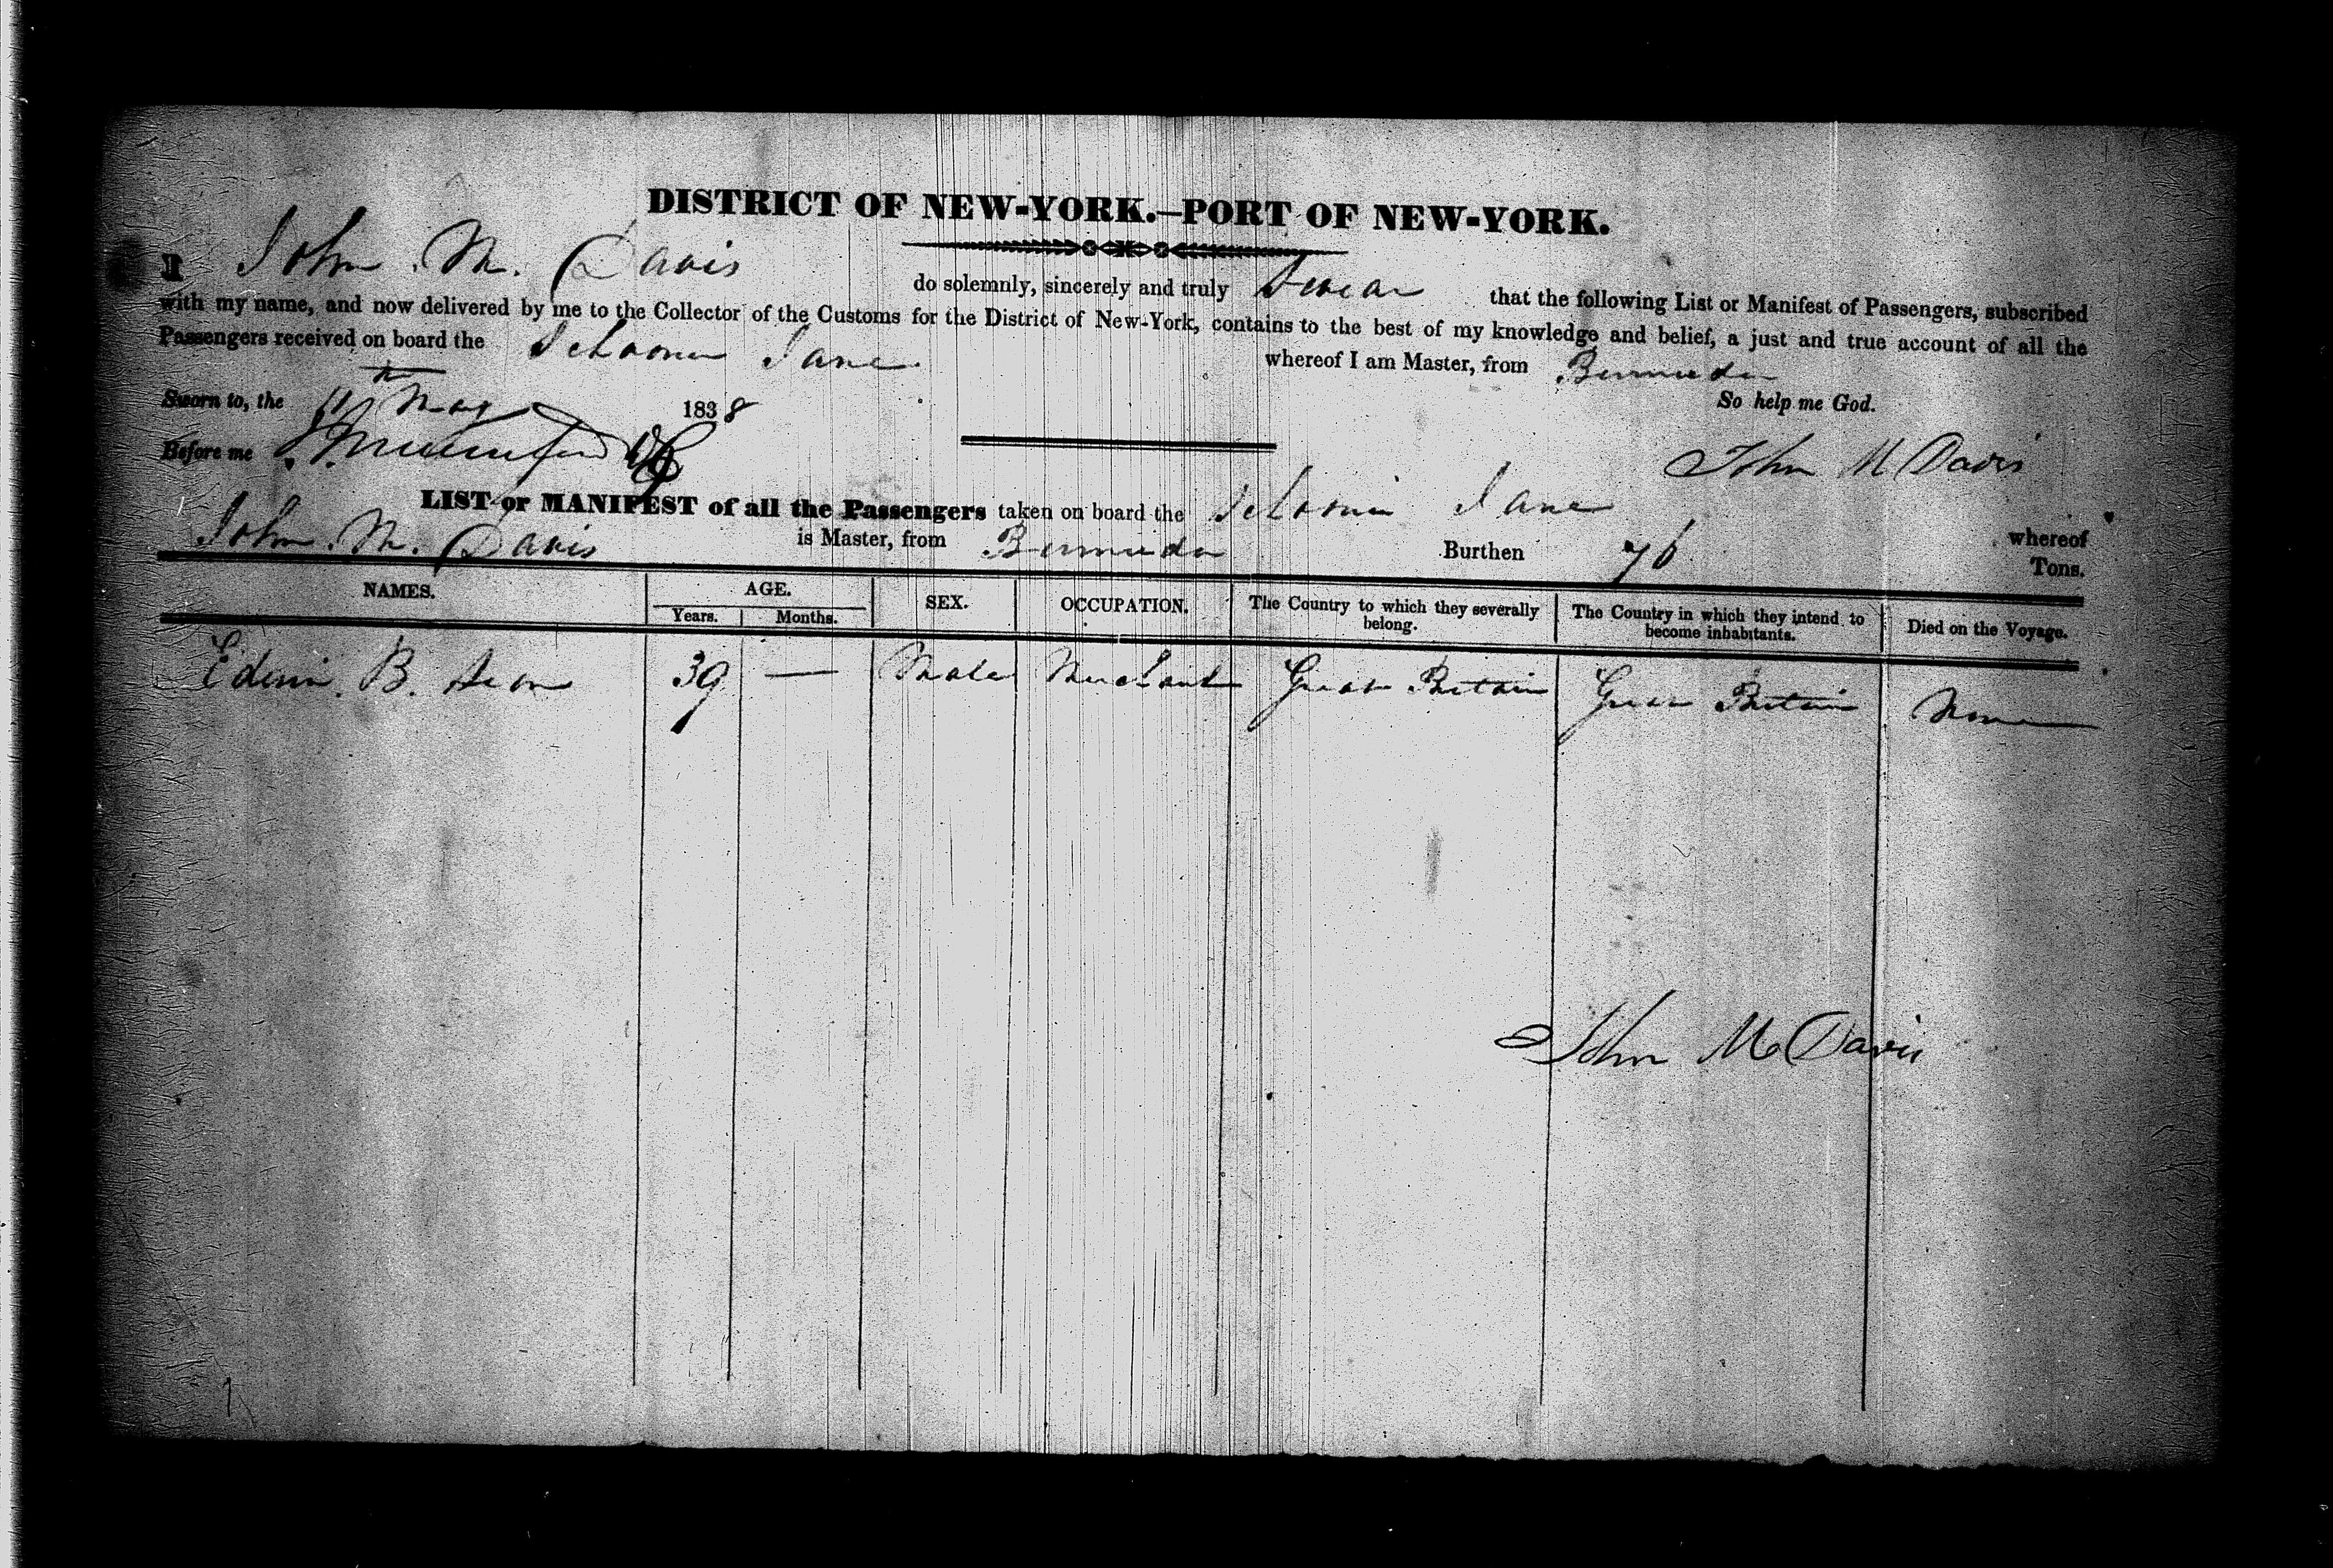 DISTRICT OF NEW-YORK.—PORT OF NEW-YORK.
I John M. Davis do solemnly, sincerely and truly Swear that the following List or Manifest of Passengers, subscribed
with my name, and now delivered by me to the Collector of the Customs for the District of New-York, contains to the best of my knowledge and belief, a just and true account of all the
Passengers received on board the Schooner Jane whereof I am Master, from Bermuda
Sworn to, the May 1838 So help me God.
Before me
John M Davis
LIST or MANIFEST of all the Passengers taken on board the Schooner Jane whereof
John M. Davis is Master, from Bermuda Burthen 76 Tons.
NAMES. AGE. SEX. OCCUPATION. The Country to which they severally belong. The Country in which they intend to become inhabitants. Died on the Voyage.
Years. Months.
Edwin B. 39 — Male Merchant Great Britain Great Britain None
John M Davis